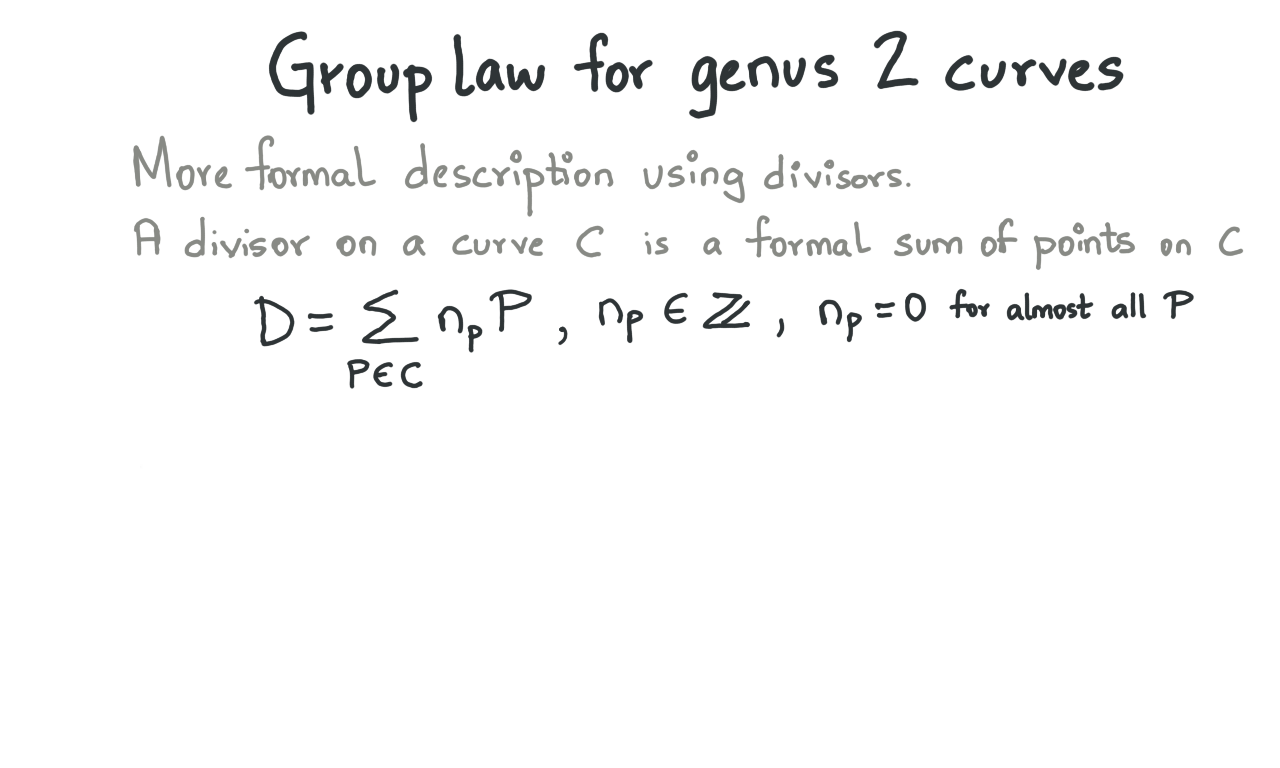 Group law for genus 2 curves
More formal description using divisors.
A divisor on a curve C is a formal sum of points on C
D = ∑ n_p P , n_p ∈ ℤ , n_p = 0 for almost all P
P∈C